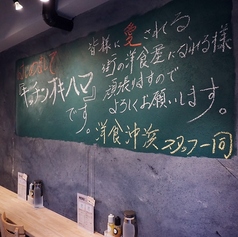 はじめまして
『キッチンオキハマ』
です。
皆様に愛される
街の洋食屋になれる様
頑張ますので
よろしくお願いします。
洋食沖浜スタッフ一同